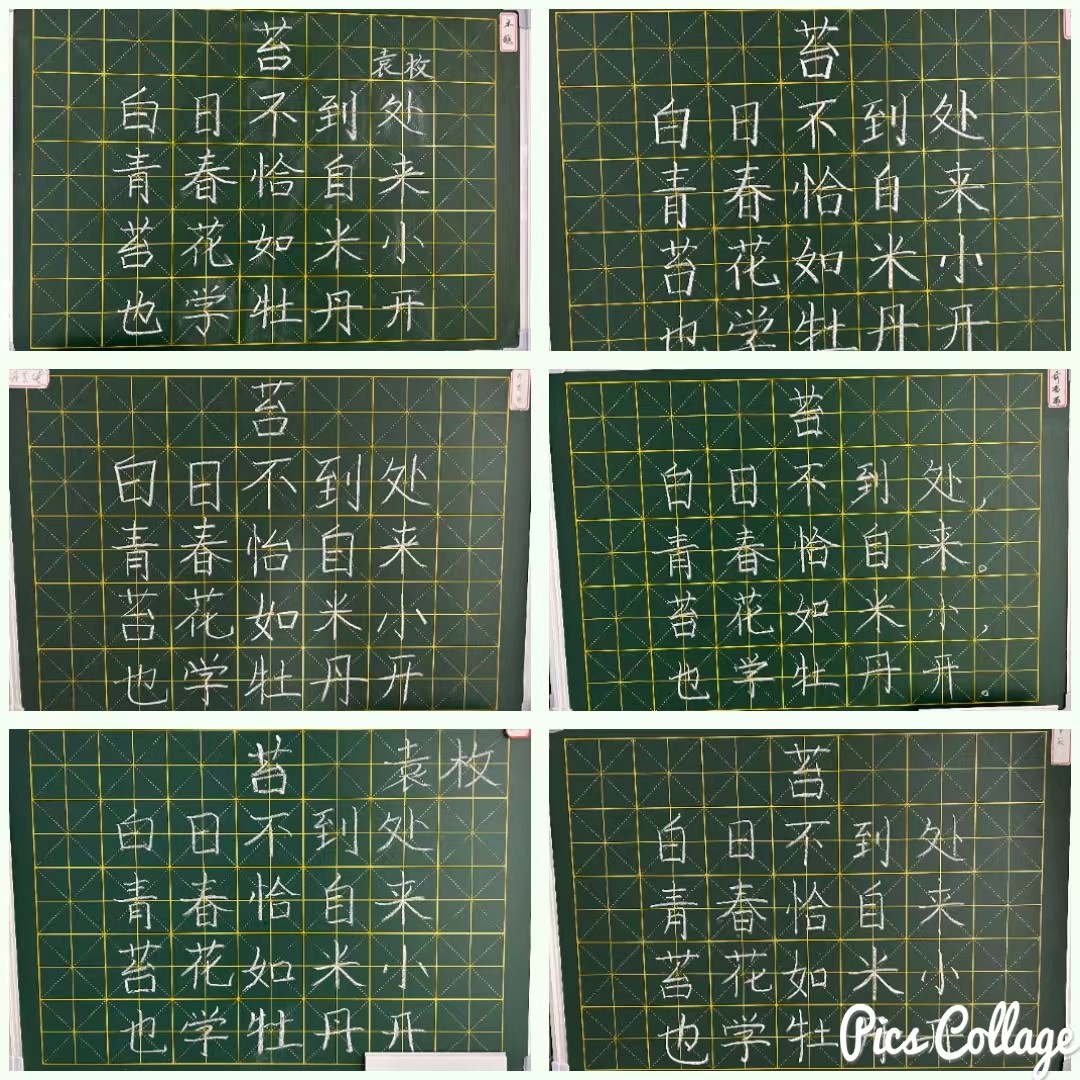 苔
袁枚
白日不到处
青春恰自来
苔花如米小
也学牡丹开
苔
白日不到处
青春恰自来
苔花如米小
也学牡丹开
苔
白日不到处
青春怡自来
苔花如米小
也学牡丹开
苔
白日不到处，
青春恰自来。
苔花如米小，
也学牡丹开。
苔 袁枚
白日不到处
青春恰自来
苔花如米小
也学牡丹开
苔
白日不到处
青春恰自来
苔花如米小
也学牡
Pics Collage